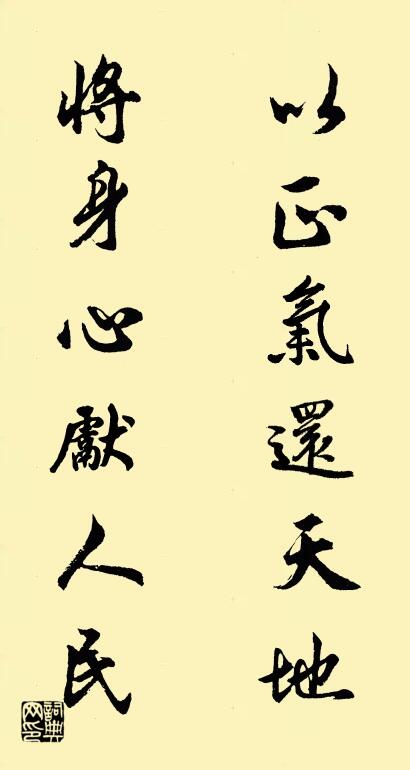 以正氣還天地
將身心獻人民
詞典網印